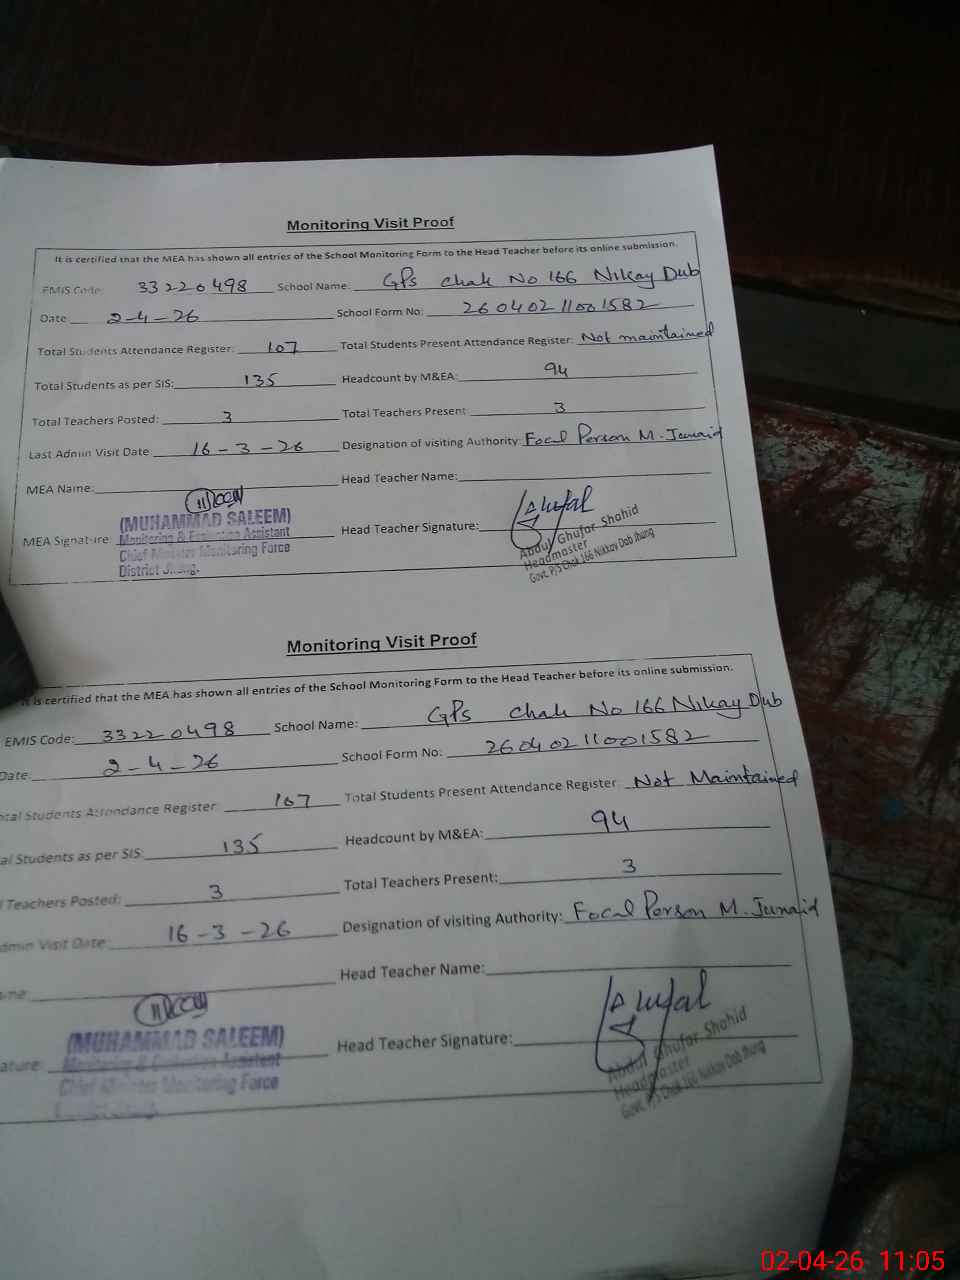 Monitoring Visit Proof
It is certified that the MEA has shown all entries of the School Monitoring Form to the Head Teacher before its online submission.
EMIS Code: 33220498 School Name: GPS Chak No 166 Nikay Dub
Date 2-4-26 School Form No: 26040211001582
Total Students Attendance Register: 107 Total Students Present Attendance Register: Not maintained
Total Students as per SIS: 135 Headcount by M&EA: 94
Total Teachers Posted: 3 Total Teachers Present 3
Last Admin Visit Date 16-3-26 Designation of visiting Authority: Focal Person M. Junaid
MEA Name: Head Teacher Name:
MEA Signature: Head Teacher Signature:
(MUHAMMAD SALEEM)
Monitoring & Evaluation Assistant
Chief Minister Monitoring Force
District Jhang.
Abdul Ghufar Shahid
Headmaster
Govt. P/S Chak 166 Nikkay Dab Jhang
Monitoring Visit Proof
It is certified that the MEA has shown all entries of the School Monitoring Form to the Head Teacher before its online submission.
EMIS Code: 33220498 School Name: GPS Chak No 166 Nikay Dub
Date: 2-4-26 School Form No: 26040211001582
tal Students Attendance Register: 107 Total Students Present Attendance Register: Not Maintained
al Students as per SIS: 135 Headcount by M&EA: 94
l Teachers Posted: 3 Total Teachers Present: 3
dmin Visit Date 16-3-26 Designation of visiting Authority: Focal Person M. Junaid
me: Head Teacher Name:
ature: Head Teacher Signature:
(MUHAMMAD SALEEM)
Monitoring & Evaluation Assistant
Chief Minister Monitoring Force
Abdul Ghufar Shahid
Headmaster
Govt. P/S Chak 166 Nikkay Dab Jhang
02-04-26 11:05